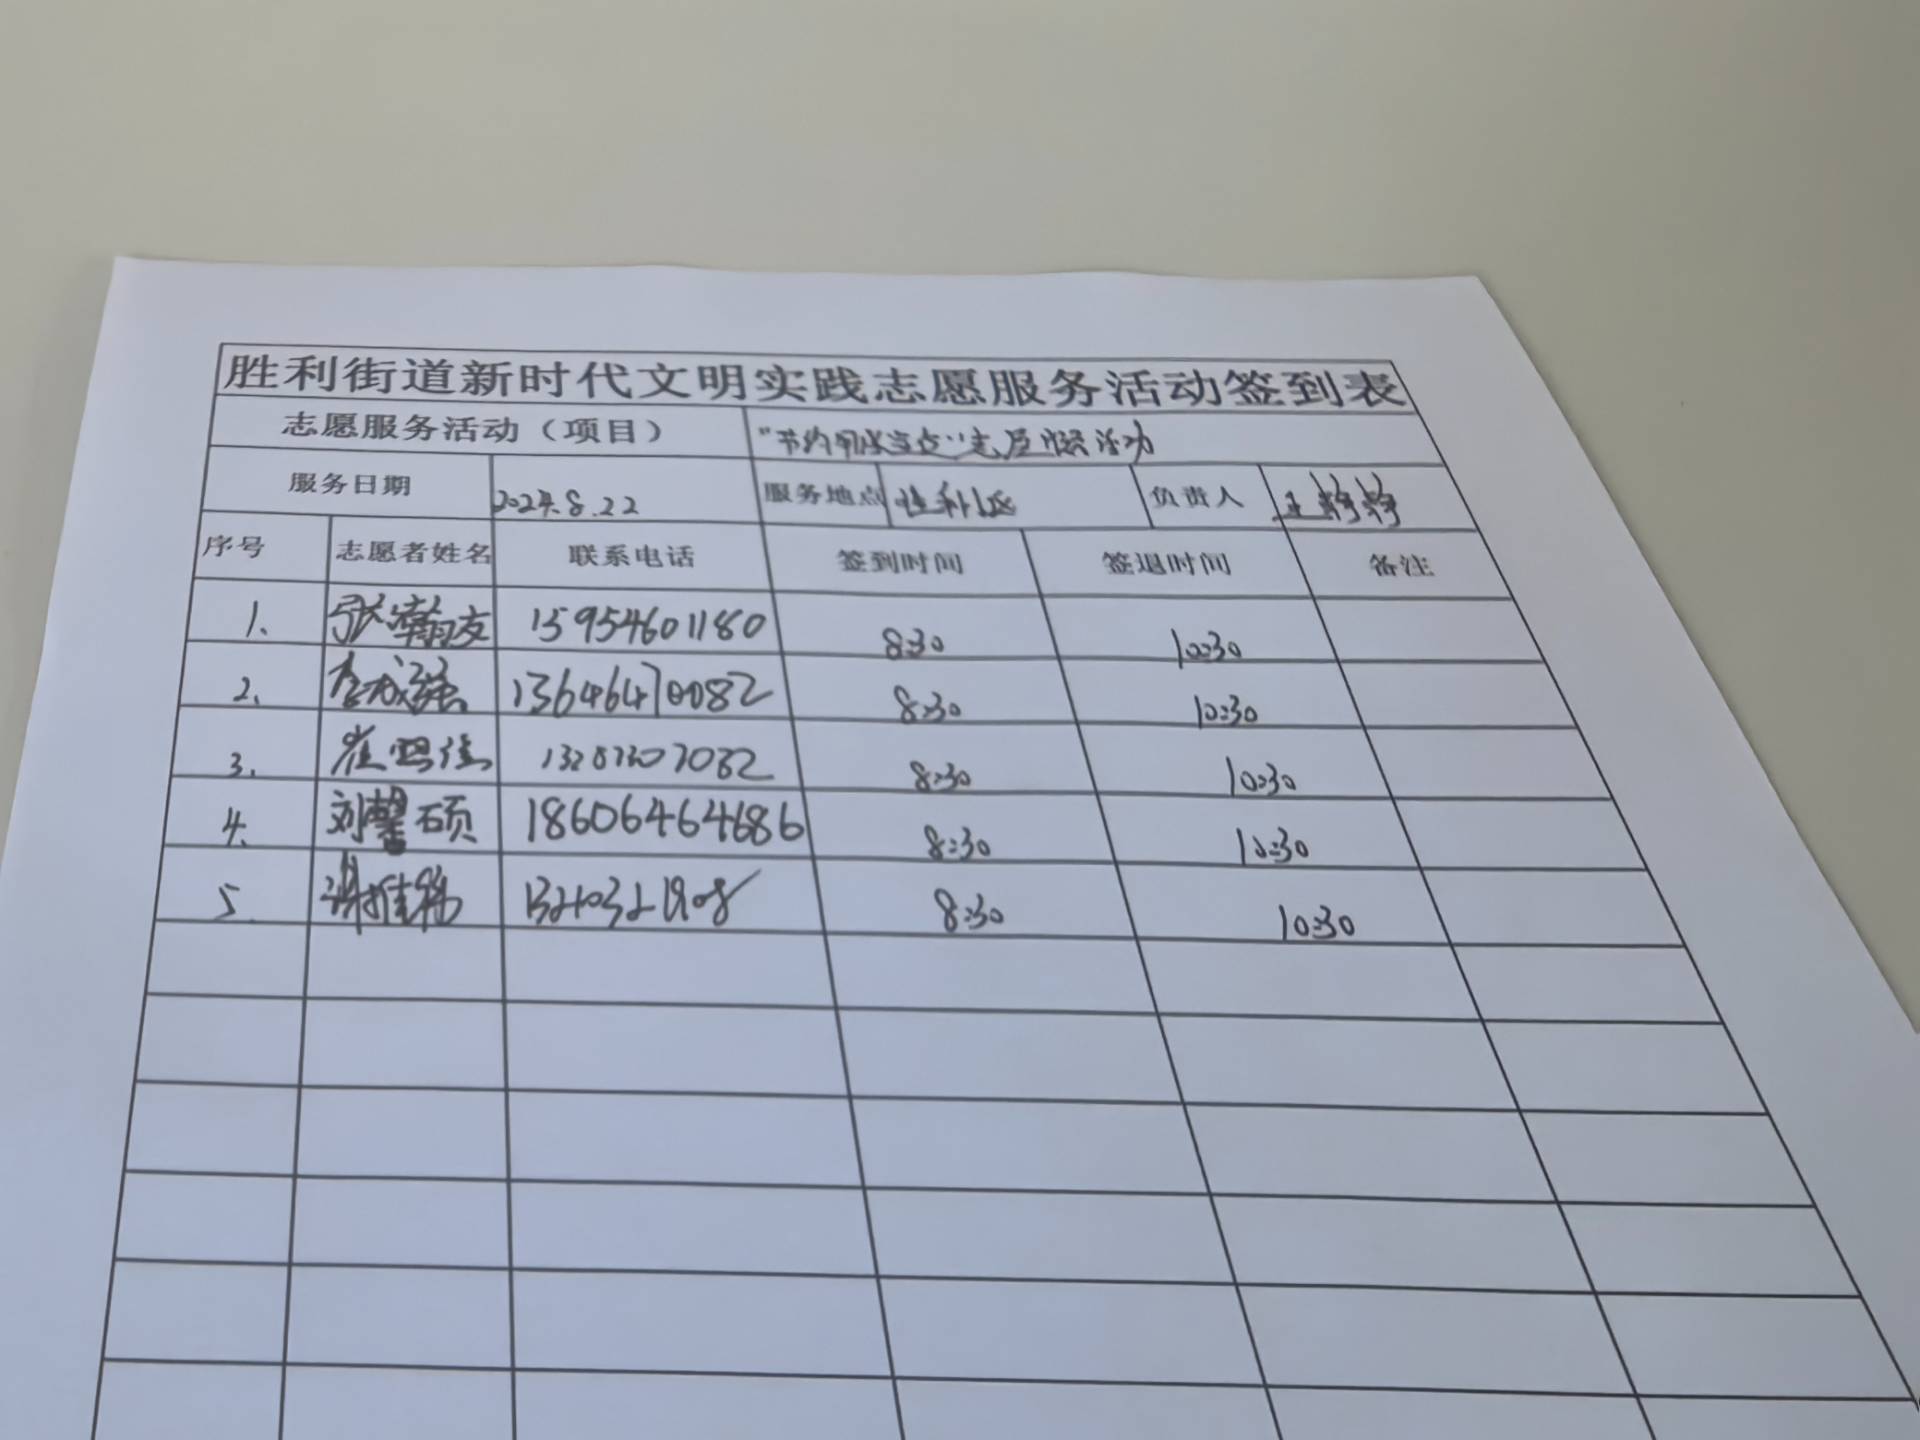 胜利街道新时代文明实践志愿服务活动签到表
志愿服务活动（项目） "节约用水 " 志愿服务活动
服务日期 2024.8.22 服务地点 胜利社区 负责人 王静静
序号 志愿者姓名 联系电话 签到时间 签退时间 备注
1. 张瀚友 15954601180 8:30 10:30
2. 13646470082 8:30 10:30
3. 崔 佳 8:30 10:30
4. 刘馨硕 18606464686 8:30 10:30
5. 谢 8:30 10:30